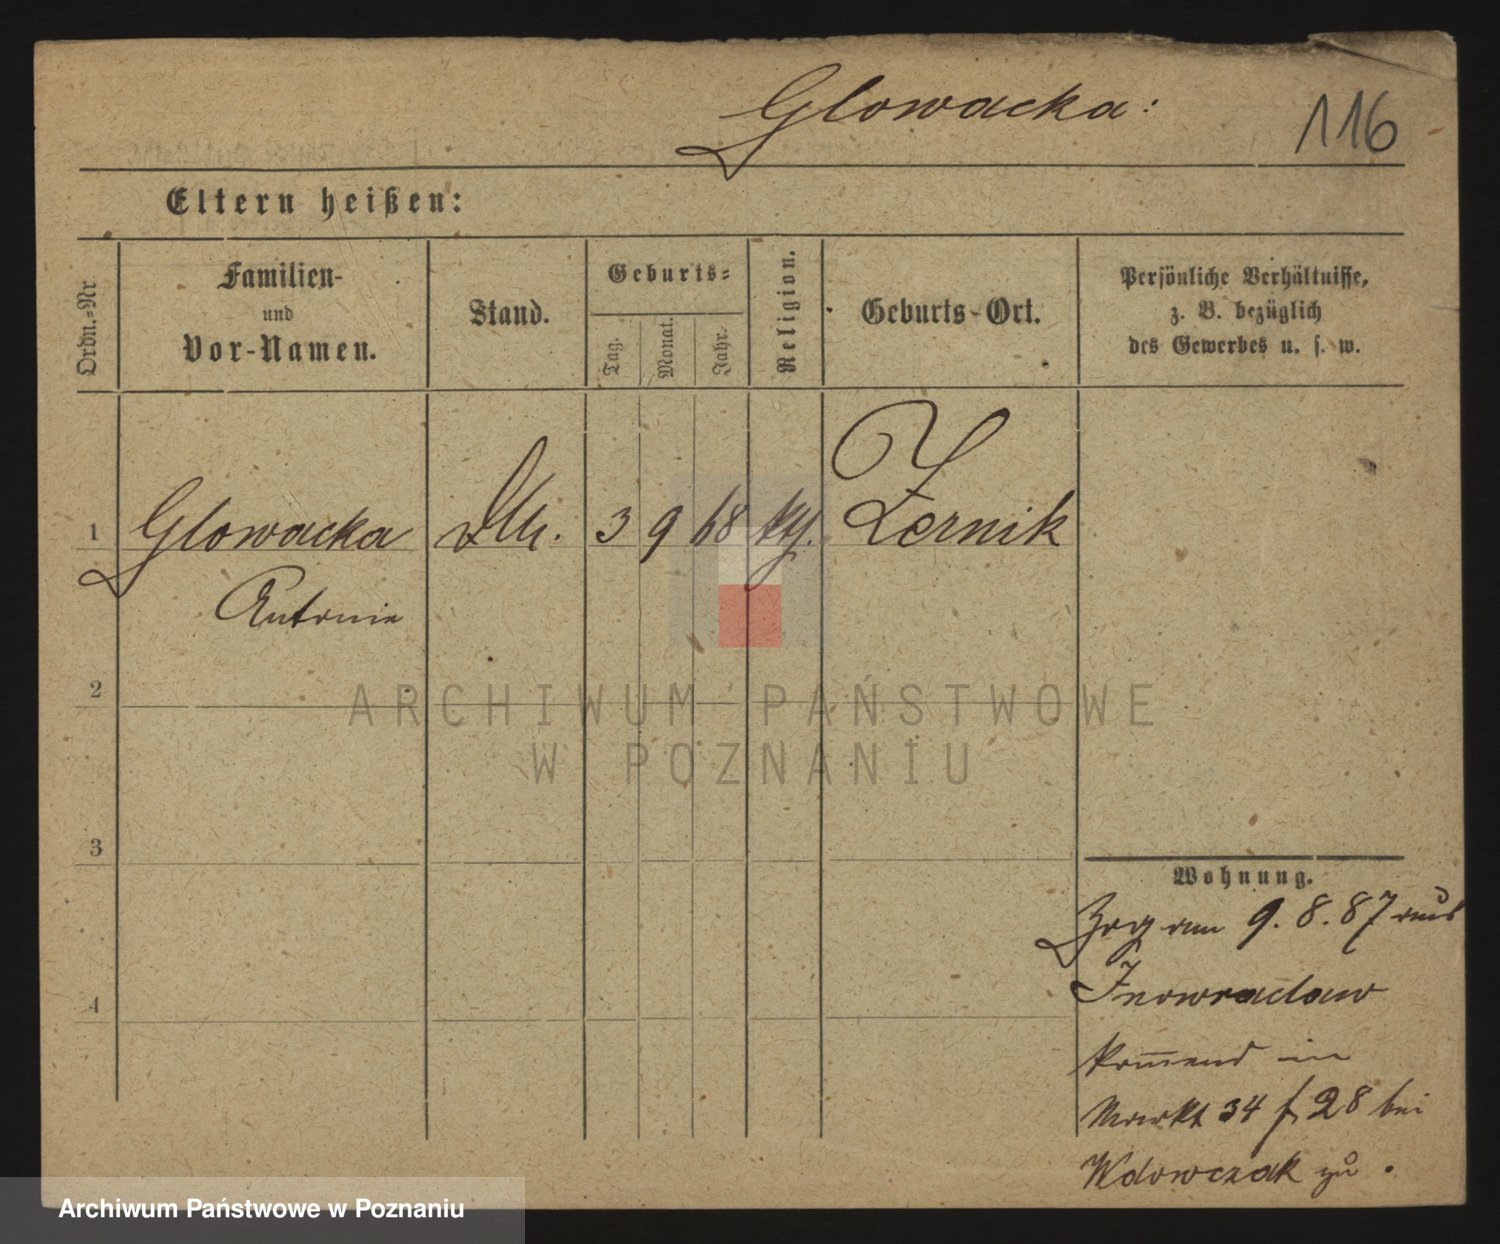 Glowacka:
116
Eltern heißen:
Ordn.-Nr
Familien-
und
Vor-Namen.
Stand.
Geburts-
Tag.
Monat.
Jahr.
Religion.
Geburts-Ort.
Persönliche Verhältnisse,
z. B. bezüglich
des Gewerbes u. s. w.
1
Glowacka
3
9
68
Zernik
Antonie
2
ARCHIWUM PAŃSTWOWE
W POZNANIU
3
Wohnung.
Zog am 9. 8. 87 aus
Inowraclaw
4
kom̅end in
Markt 34 f 28 bei
Wdowczak zu.
Archiwum Państwowe w Poznaniu